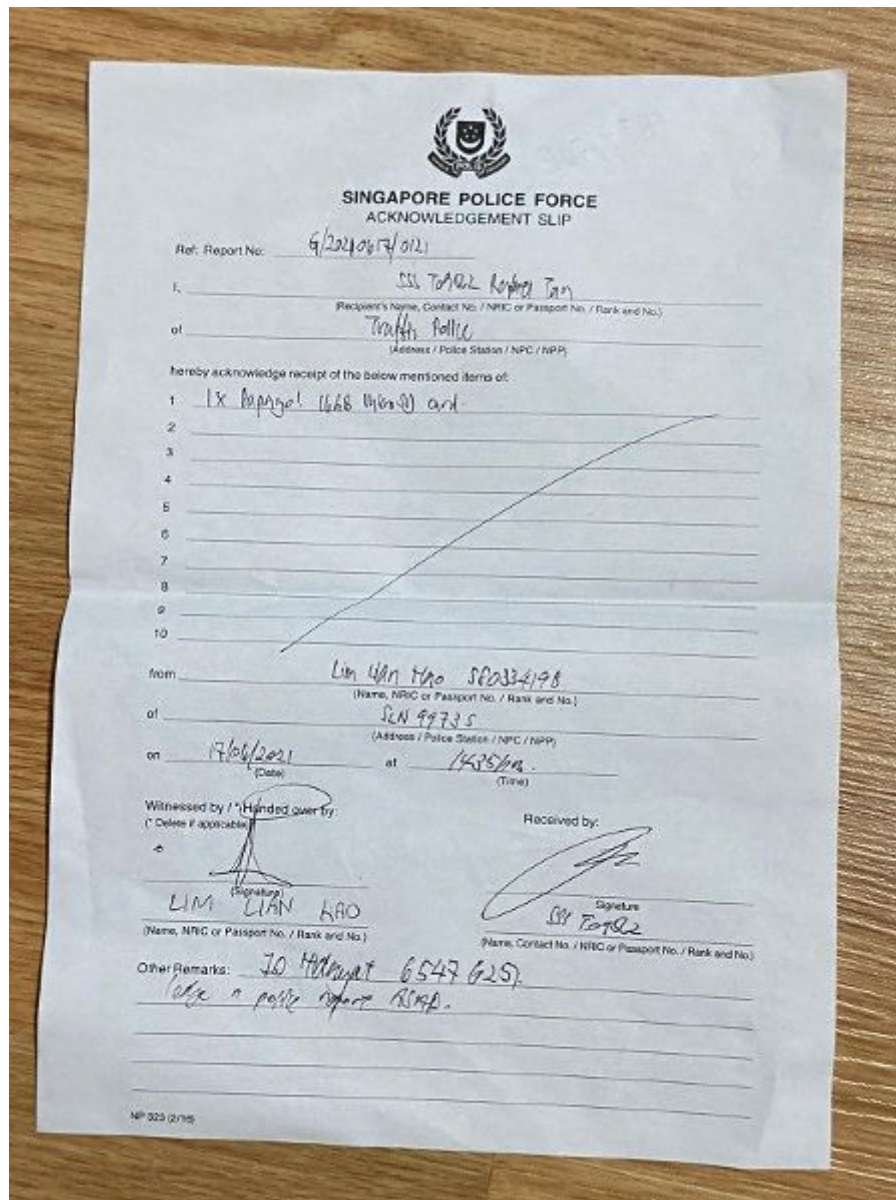 SINGAPORE POLICE FORCE
ACKNOWLEDGEMENT SLIP
Ref: Report No: G/20210617/0121
I, Tan
(Recipient's Name, Contact No. / NRIC or Passport No. / Rank and No.)
of Traffic Police
(Address / Police Station / NPC / NPP)
hereby acknowledge receipt of the below mentioned items of:
1 1x card.
2
3
4
5
6
7
8
9
10
from Lim
(Name, NRIC or Passport No. / Rank and No.)
of
(Address / Police Station / NPC / NPP)
on 17/06/2021 at
(Date) (Time)
Witnessed by / *Handed over by:
(* Delete if applicable)
Received by:
(Signature)
Signature
LIM LIAN HAO
(Name, NRIC or Passport No. / Rank and No.)
(Name, Contact No. / NRIC or Passport No. / Rank and No.)
Other Remarks: IO Hidayat 6547 6251.
a police report ASAP.
NP 323 (2/16)